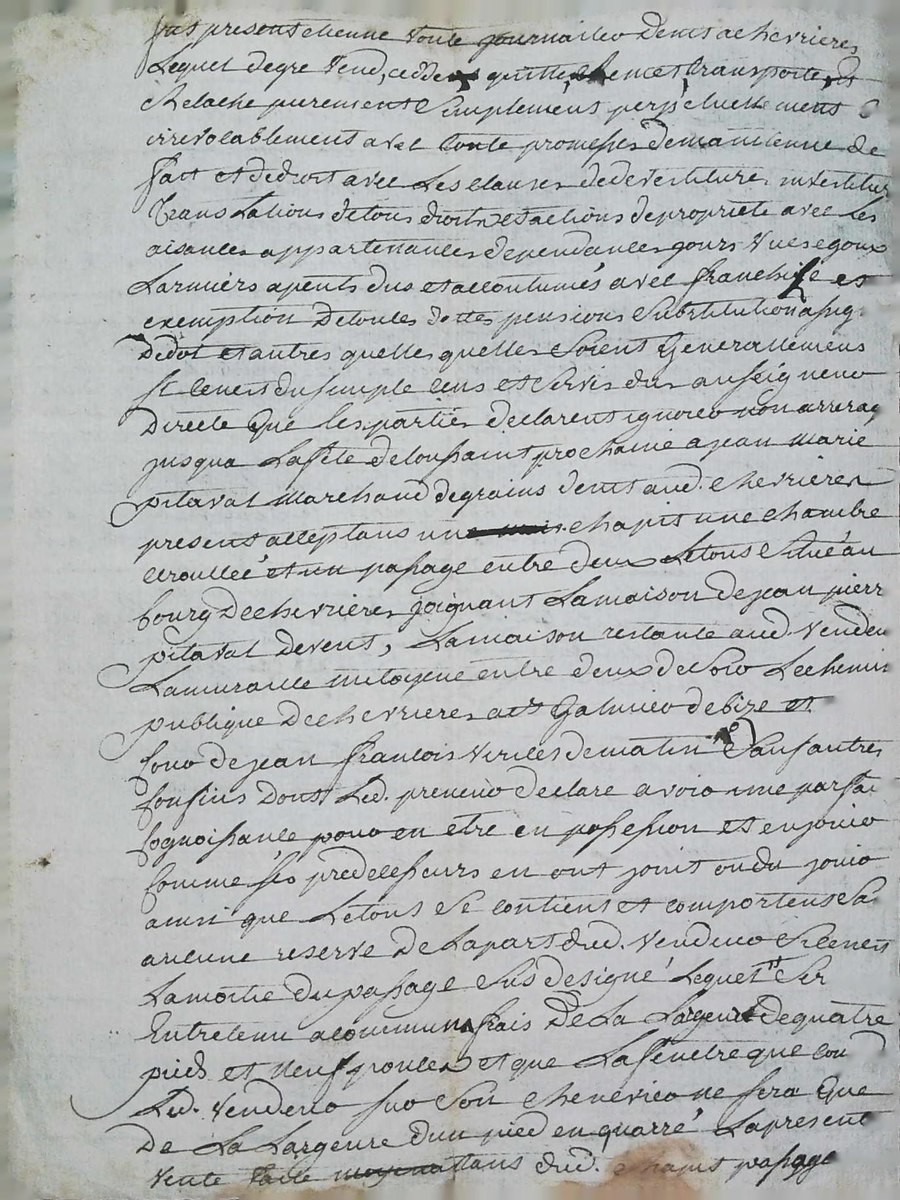 fut present etienne Voute journalier demt a chevrieres
Lequel degre Vend, cedde quitte remet transporte et
Relache purement Simplement perpetuellement &
irrevocablement avec toute promesse de maintenue de
fait et de droit avec Les clauses de devestiture investiture
Translations de tous droits et actions de propriete avec Les
aisances appartenances dependances jours Vues egoux
Larmiers apents dus et accoutumés avec franchise et
exemption De toutes dettes pensions Substitution
De dot et autres quelles quelles Soient Generallement
Si cenest du simple cens et Servis du au seigneur
Directe Que les parties declarent ignorer non arrerag
jusqua Lafête de toussaint prochaine a jean Marie
pitaval Marchand de grains demt aud. chevrieres
present acceptant un chapit une chambre
ecroullée et un passage entre deux Letout Situé au
bourg De chevrieres joignant Lamaison de jean pierr
pitaval de vent, Lamaison restante aud Vendeur
Lamuraille mitoyene entre deux de Soir Le chemin
publique De chevrieres a Galmier de bize et
Cour de jean francois de matin Sauf autres
Confins Dont Led. preneur declare avoir une parfai
Cognoissance pour en etre en possession et en jouir
Comme ses predecesseurs en ont jouit ou du jouir
ainsi que Letout Se contient et comporte Sa
aucune reserve De Lapart dud. Vendeur Si cenest
Lamoitie du passage Sus designé Lequel Ser
Entretenu a communs frais De La Largeur de quatre
pieds et Neuf pouces et que Lafenetre que
Led. Vendeur sur Son chenevier ne sera Que
De La Largeure dun pied en quarré Lapresent
Vente faite dud. chapit passage